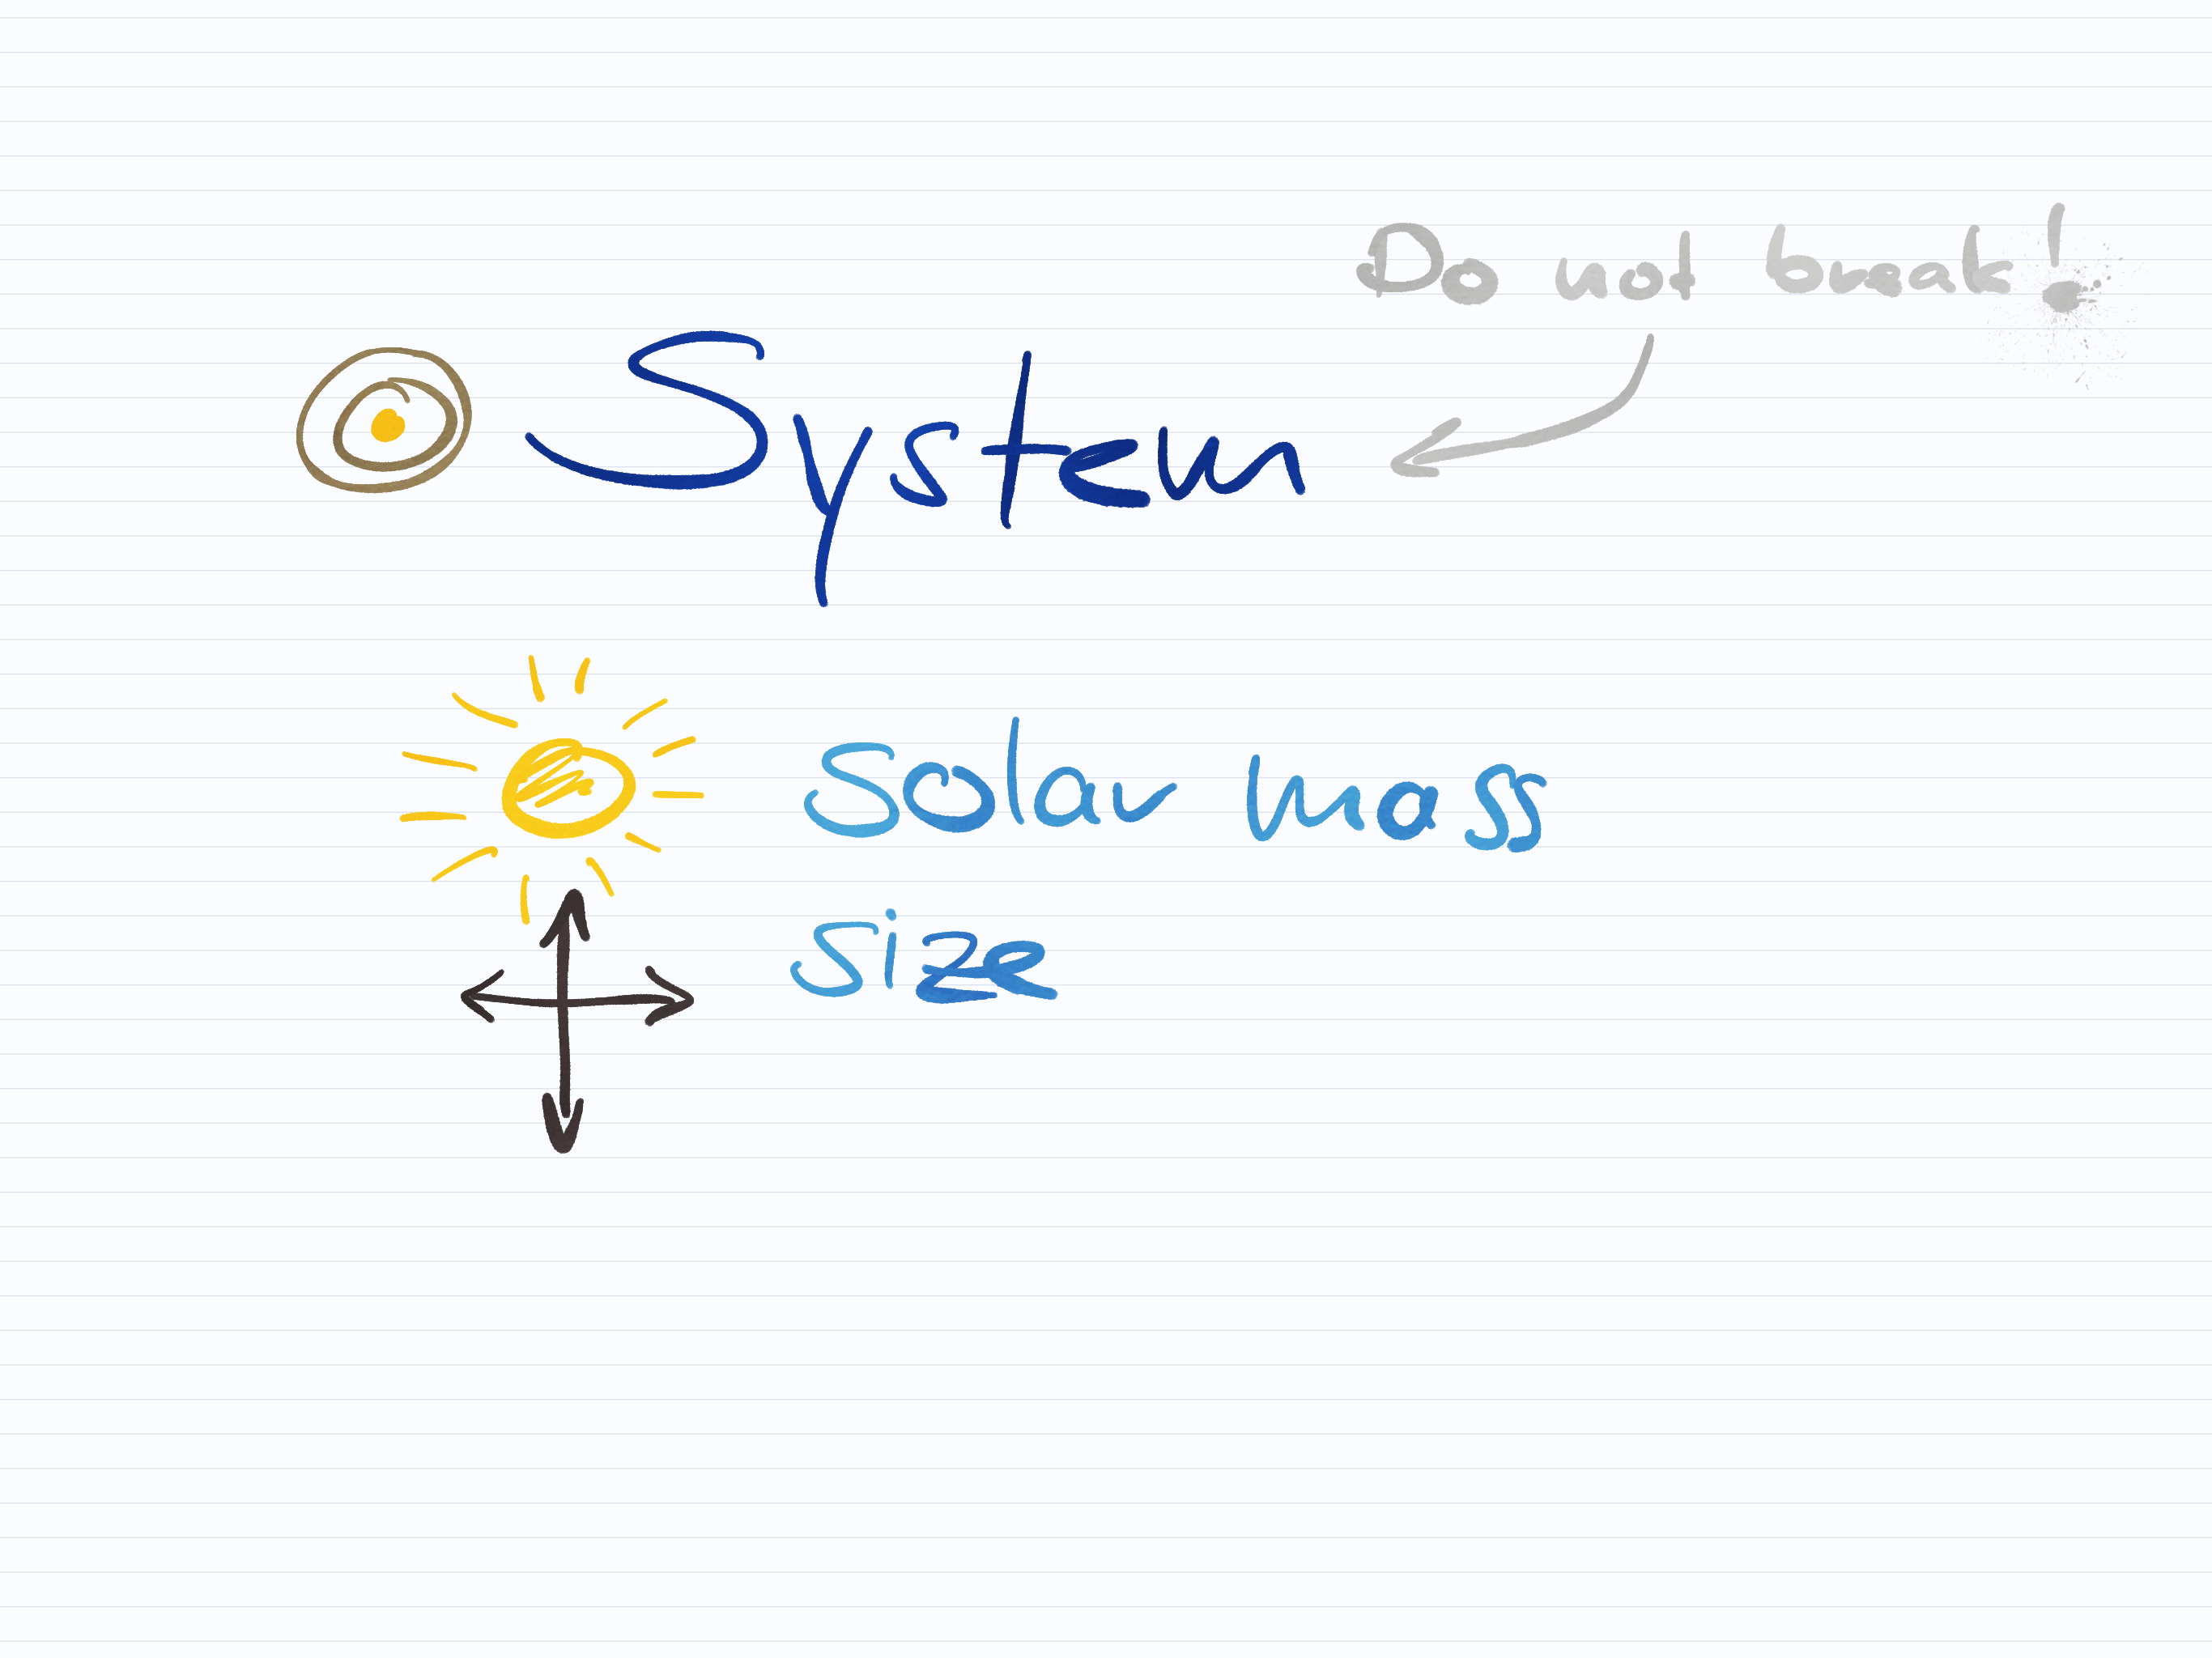 Do not break!
System
Solar mass
Size